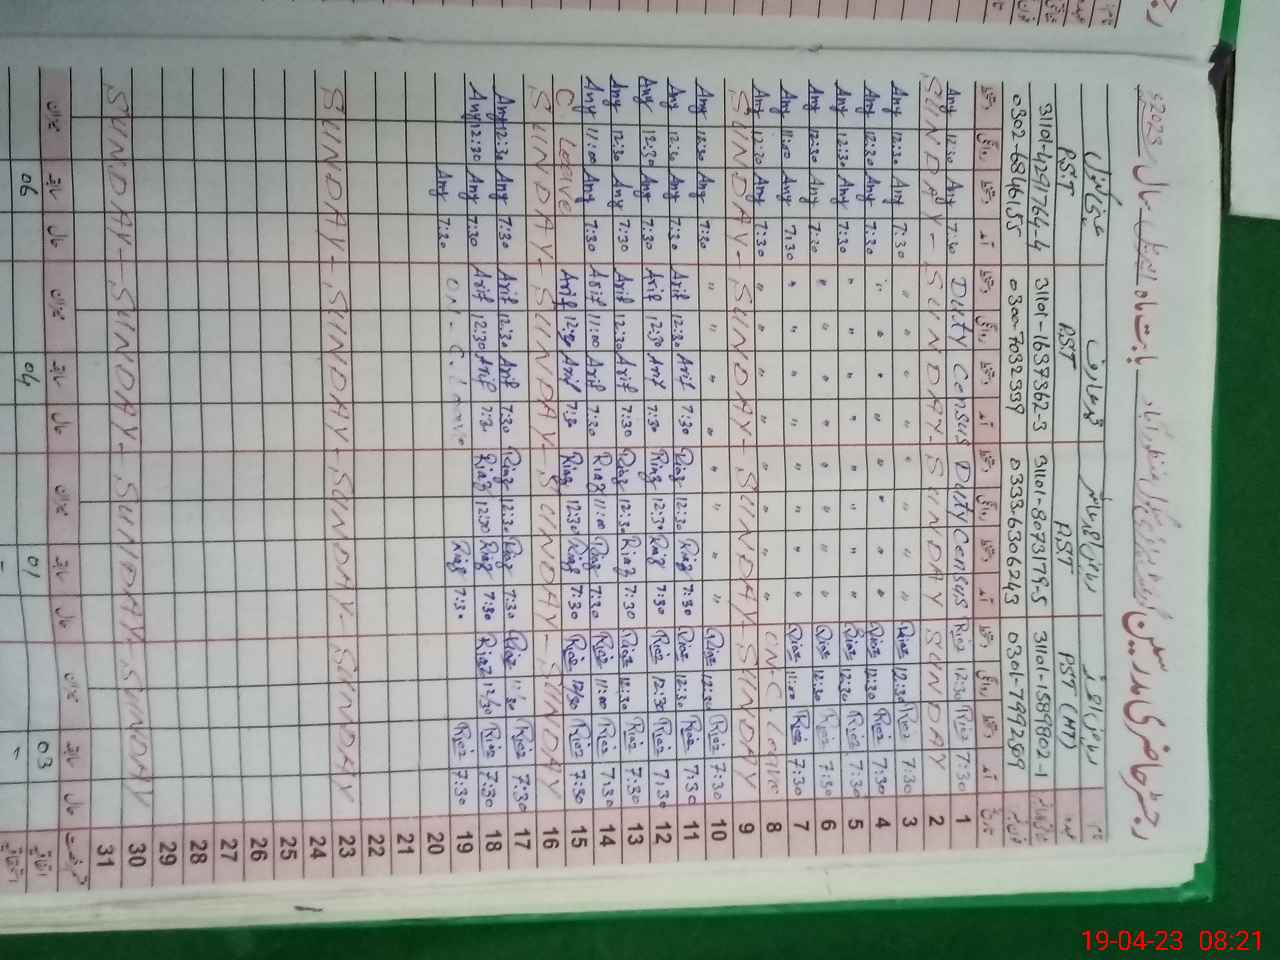 رجسٹر حاضری مدرسین بابت ماہ اپریل سال 2023ء
محمد عارف ریاض احمد نام
P.S.T PST PST PST (HT) عہدہ
31101-4291764-4 31101-1637362-3 31101-8073179-5 31101-1589802-1
0302-6846155 0300-7032339 0333-6306243 0301-7992509
دستخط روانگی دستخط آمد دستخط روانگی دستخط آمد دستخط روانگی دستخط آمد دستخط روانگی دستخط آمد تاریخ
Any 12:30 Any 7:30 Duty Census Duty Census Riaz 12:30 Riaz 7:30 1
SUNDAY - SUNDAY - SUNDAY SUNDAY 2
Any 12:30 Any 7:30 " " " " " " " " Riaz 12:30 Riaz 7:30 3
Any 12:30 Any 7:30 " " " " " " " " Riaz 12:30 Riaz 7:30 4
Any 12:30 Any 7:30 " " " " " " " " Riaz 12:30 Riaz 7:30 5
Any 12:30 Any 7:30 " " " " " " " " Riaz 12:30 Riaz 7:30 6
Any 11:00 Any 7:30 " " " " " " " " Riaz 11:00 Riaz 7:30 7
Any 12:30 Any 7:30 " " " " " " " " ON-C-Leave 8
SUNDAY - SUNDAY - SUNDAY - SUNDAY 9
Any 12:30 Any 7:30 " " " " " " " " Riaz 12:30 Riaz 7:30 10
Any 12:30 Any 7:30 Arif 12:30 Arif 7:30 Riaz 12:30 Riaz 7:30 Riaz 12:30 Riaz 7:30 11
Any 12:30 Any 7:30 Arif 12:30 Arif 7:30 Riaz 12:30 Riaz 7:30 Riaz 12:30 Riaz 7:30 12
Any 12:30 Any 7:30 Arif 12:30 Arif 7:30 Riaz 12:30 Riaz 7:30 Riaz 12:30 Riaz 7:30 13
Any 11:00 Any 7:30 Arif 11:00 Arif 7:30 Riaz 11:00 Riaz 7:30 Riaz 11:00 Riaz 7:30 14
C. Leave Arif 12:30 Arif 7:30 Riaz 12:30 Riaz 7:30 Riaz 12/30 Riaz 7:30 15
SUNDAY - SUNDAY - SUNDAY - SUNDAY 16
Any 12:30 Any 7:30 Arif 12:30 Arif 7:30 Riaz 12:30 Riaz 7:30 Riaz Riaz 7:30 17
Any 12:30 Any 7:30 Arif 12:30 Arif 7:30 Riaz 12:30 Riaz 7:30 Riaz 12/30 Riaz 7:30 18
Any 7:30 ON - C. Leave Riaz 7:30 Riaz 7:30 19
20
21
22
SUNDAY - SUNDAY - SUNDAY - SUNDAY 23
24
25
26
27
28
29
SUNDAY - SUNDAY - SUNDAY - SUNDAY 30
31
میزان سابقہ حال میزان سابقہ حال میزان سابقہ حال میزان سابقہ حال
06 04 01 03
19-04-23 08:21